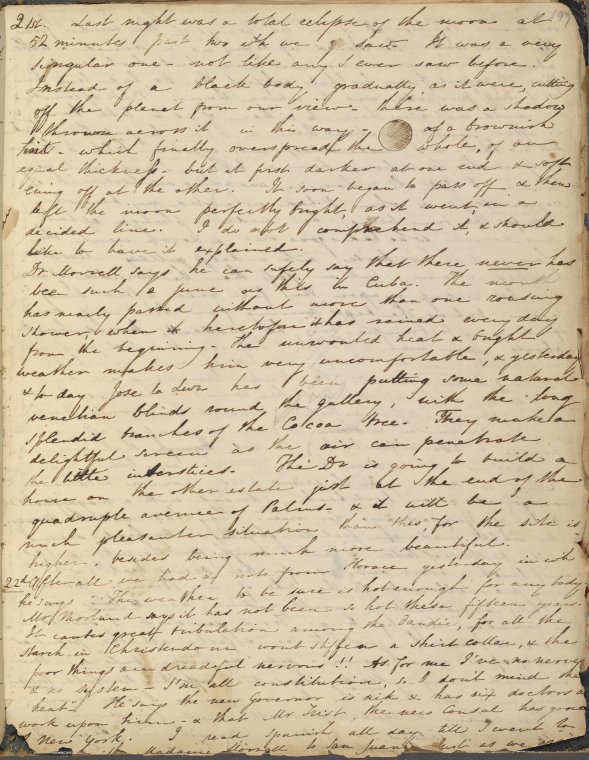 197
21st. Last night was a total eclipse of the moon at
52 minutes past two wh we saw. It was a very
singular one - not like any I ever saw before.
Instead of a black body gradually as it were, cutting
off the planet from our view - there was a shadow
thrown across it in this way - of a brownish
tint - which finally overspread the whole, of an
equal thickness - but at first darker at one end & soft
ening off at the other. It soon began to pass off & then
left the moon perfectly bright, as it went, in a
decided line. I do not comprehend it, & should
like to have it explained.
Dr Morrell says he can safely say that there never has
been such a June as this in Cuba. The month
has nearly passed without more than one rousing
shower, when heretofore it has rained every day
from the beginning. The unwonted heat & bright
weather makes him very uncomfortable, & yesterday
& to day Jose has been putting some natural
venetian blinds round the gallery, with the long
splendid branches of the Cocoa tree. They make a
delightful screen as the air can penetrate
the little interstices. The Dr is going to build a
house on the other estate just at the end of the
quadruple avenue of Palms - & it will be a
much pleasanter situation than this, for the site is
higher - besides being much more beautiful.
22nd After all we had a note from Horace yesterday in wh
he says "The weather to be sure is hot enough for any body.
Mr Morland says it has not been so hot these fifteen years.
It causes great tribulation among the Dandies, for all the
starch in Christendom wont stiffen a shirt collar, & the
poor things are dreadful nervous!! As for me I've no nerves
& no system - I'm all constitution, so I don't mind the
heat." He says the new Governor is sick & has six doctors at
work upon him - & that Mr Trist, the new Consul has gone
to New York. I read Spanish all day till I went to
Madame Morrell to San Juan. Just as we